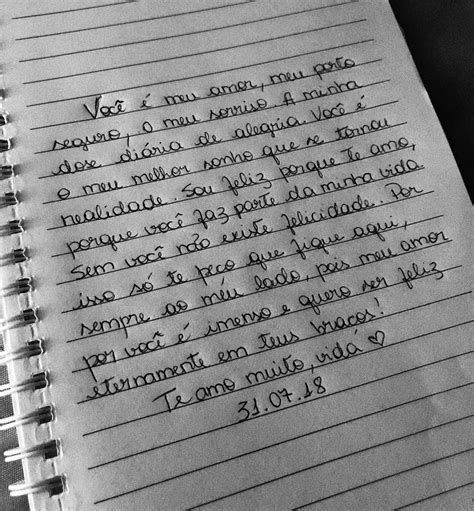 Você é meu amor, meu porto
seguro, o meu sorriso. A minha
dose diária de alegria. Você é
o meu melhor sonho que se tornou
realidade. Sou feliz porque te amo,
porque você faz parte da minha vida.
Sem você não existe felicidade. Por
isso só te peço que fique aqui,
sempre ao meu lado, pois meu amor
por você é imenso e quero ser feliz
eternamente em teus braços!
Te amo muito, vida ♡
31.07.18